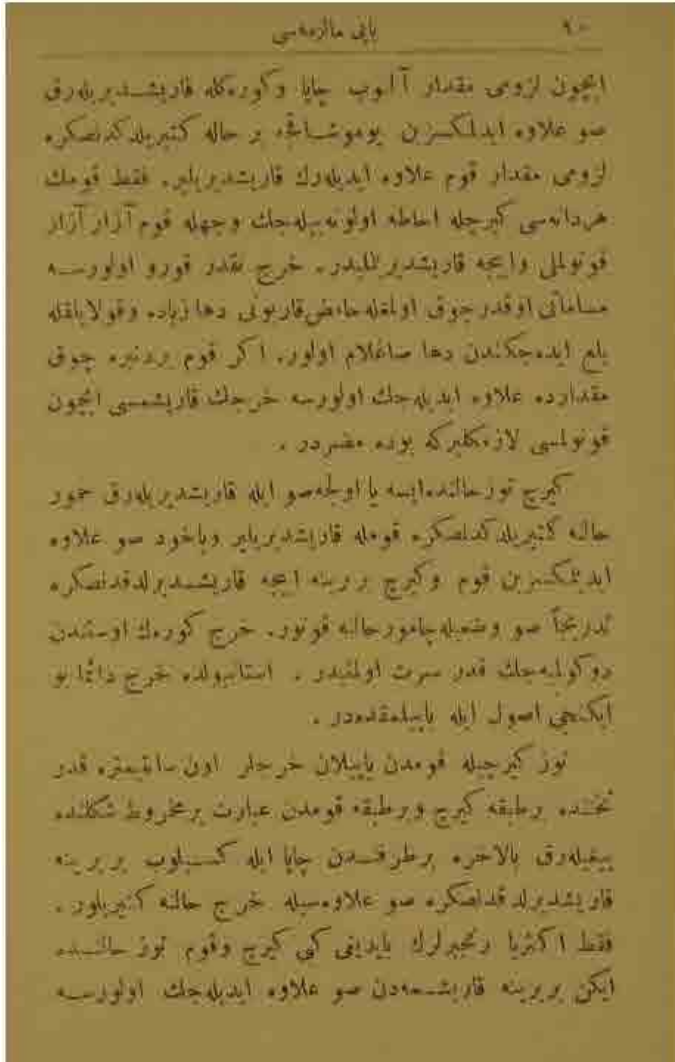 ٩٠
یاپی مالزمه‌سی
ایچون لزومی مقدار آلوب چاپا وکوره‌کله قاریشدیریله‌رق
صو علاوه ایدلمکسزین یوموشاقجه بر حاله کتیریلدکدنصکره
لزومی مقدار قوم علاوه ایدیله‌رك قاریشدیریلیر. فقط قومك
هردانه‌سی کیرجله احاطه اولونه‌بیله‌جك وجهله قوم آزار آزار
قونولملی وایجه قاریشدیریلملیدر. خرج نقدر قورو اولورسه
مساماتی اوقدر چوق اولمغله حامض قاربونی دها زیاده وقولایلقله
بلع ایده‌جکندن دها صاغلام اولور. اکر قوم بردنبره چوق
مقدارده علاوه ایدیله‌جك اولورسه خرجك قاریشمسی ایچون
قونولمسی لازمکلیرکه بوده مضردر .
کیرج توز حالنده‌ایسه یا اولجه‌صو ایله قاریشدیریله‌رق خمور
حالنه کتیریلدکدنصکره قومله قاریشدیریلیر ویاخود صو علاوه
ایدیلمکسزین قوم وکیرج بربرینه ایجه قاریشدیرلدقدنصکره
تدریجاً صو وضعیله‌چامور‌حالنه قونور. خرج کوره‌ك اوستندن
دوکولمیه‌جك قدر سرت اولملیدر . استانبولده خرج دائما بو
ایکنجی اصول ایله یاپیلمقده‌در .
توز کیرجیله قومدن یاپیلان خرجلر اون سانتیمتره قدر
ثخننده برطبقه کیرج وبرطبقه قومدن عبارت برمخروط شکلنده
ییغیله‌رق بالاخره برطرفدن چاپا ایله کسیلوب بربرینه
قاریشدیرلدقدنصکره صو علاوه‌سیله خرج حالنه کتیریلور .
فقط اکثریا رنجبرلرك یاپدیغی کبی کیرج وقوم توز حالنده
ایکن بربرینه قاریشمه‌دن صو علاوه ایدیله‌جك اولورسه